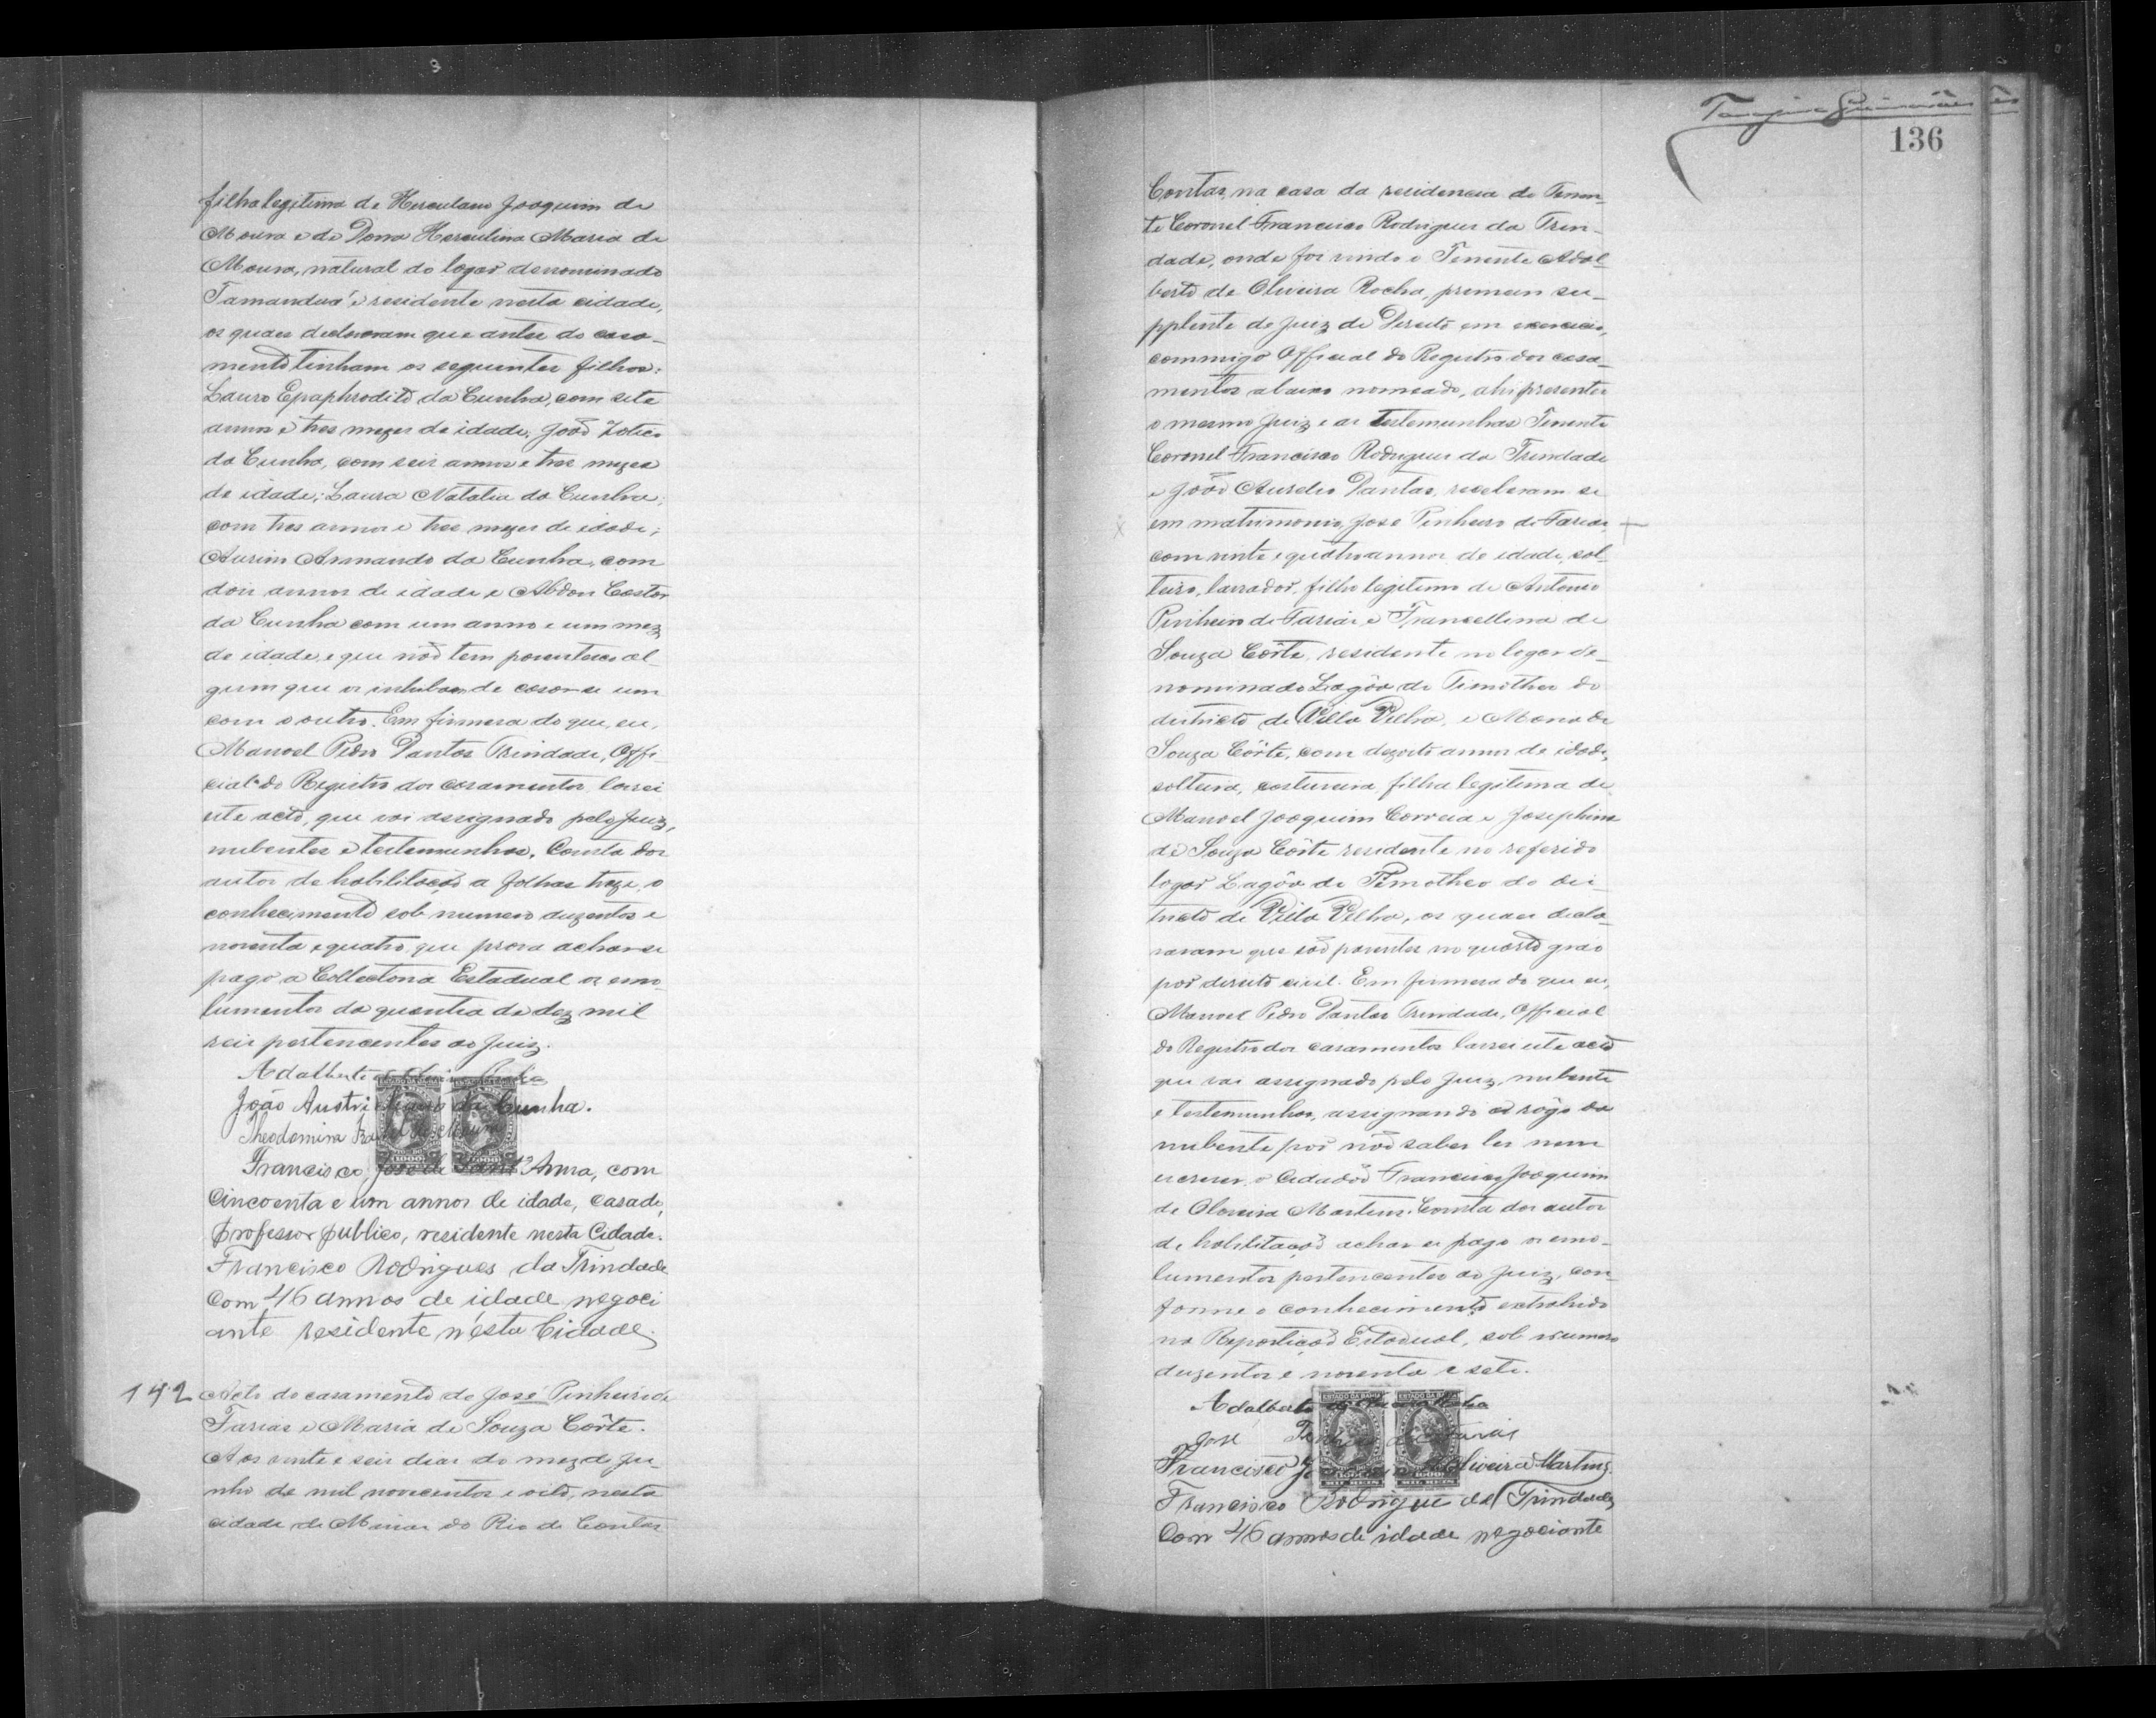 filha legitima de Herculano Joaquim de
Moura e de Dona Herculina Maria de
Moura, natural do logar denominado
Tamanduá e residente nesta cidade,
os quaes declararam que antes do casa-
mento tinham os seguintes filhos:
Lauro Epaphrodito da Cunha, com sete
annos e tres mezes de idade; João Zotico
da Cunha, com seis annos e tres mezes
de idade; Laura Natalia da Cunha,
com tres annos e tres mezes de idade;
Aurino Armando da Cunha, com
dois annos de idade e Abdon Castor
da Cunha com um anno e um mez
de idade, e que não tem parentesco al-
gum que os inhibam de casar-se um
com o outro. Em firmesa do que, eu,
Manoel Pedro Dantas Trindade, Offi-
cial do Registro dos casamentos lavrei
este acto, que vai assignado pelo Juiz,
nubentes e testemunhas. Consta dos
autos de habilitação a folhas treze, o
conhecimento sob numero duzentos e
noventa e quatro, que prova achar-se
pago a Collectoria Estadual os emo-
lumentos da quantia de dez mil
reis pertencentes ao Juiz.
Adalberto de Oliveira Rocha
João Austricliano da Cunha.
Theodomira de Moura
Francisco José de Sant'Anna, com
Cincoenta e um annos de idade, casado,
professor publico, residente nesta Cidade.
Francisco Rodrigues da Trindade
Com 46 annos de idade negoci
ante residente nésta Cidade.
142 Acto do casamento de José Pinheiro de
Farias e Maria de Souza Côrte.
Aos vinte e seis dias do mez de Ju-
nho de mil novecentos e oito, nesta
cidade de Minas do Rio de Contas
136
Contas, na casa da residencia do Tenen-
te Coronel Francisco Rodrigues da Trin-
dade, onde foi vindo o Tenente Adal-
berto de Oliveira Rocha, primeiro su-
pplente de Juiz de Direito em exercicio,
commigo Official do Registro dos casa-
mentos abaixo nomeado, ahi presentes
o mesmo Juiz e as testemunhas Tenente
Coronel Francisco Rodrigues da Trindade
e João Aurelio Dantas, receberam se
em matrimonio, José Pinheiro de Farias,
com vinte e quatro annos de idade, sol-
teiro, lavrador, filho legitimo de Antonio
Pinheiro de Farias e Francellina de
Souza Côrte, residente no logar de-
nominado Lagôa do Timotheo do
districto de Villa Velha, e Maria de
Souza Côrte, com dezoito annos de idade,
solteira, costureira, filha legitima de
Manoel Joaquim Correia e Josephina
de Souza Côrte residente no referido
logar Lagôa do Timotheo do dis-
tricto de Villa Velha, os quaes decla-
raram que são parentes no quarto grao
por direito civil. Em firmesa do que eu,
Manoel Pedro Dantas Trindade, Official
do Registro dos casamentos lavrei este acto
que vai assignado pelo Juiz, nubente
e testemunhas, assignando a rôgo da
nubente por não saber ler nem
escrever, o Cidadão Francisco Joaquim
de Oliveira Martins. Consta dos autos
de habilitação achar se pago os emo-
lumentos pertencentes ao Juiz, con-
forme o conhecimento extrahido
na Repartição Estadual, sob numero
duzentos e noventa e sete.
ESTADO DA BAHIA ESTADO DA BAHIA
Adalberto de Oliveira Rocha
José Pinheiro de Farias
Francisco Joaquim de Oliveira Martins.
MIL REIS MIL REIS
Francisco Rodrigues da Trindade
Com 46 annos de idade negociante